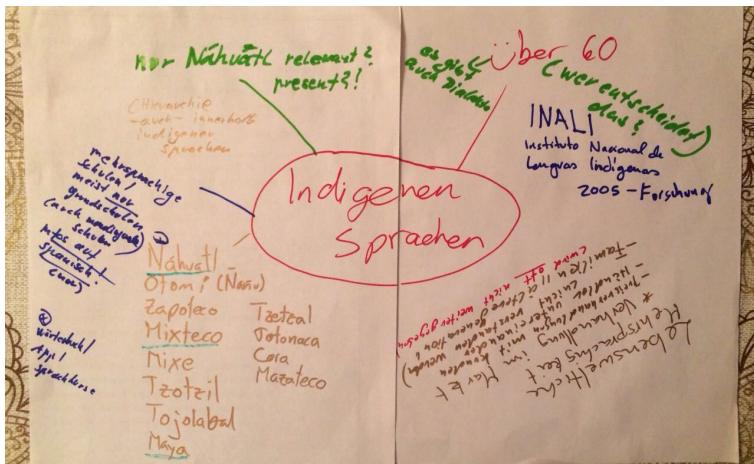 Nur Náhuatl relevant?
präsent?!
(Hierarchie
- auch - innerhalb
indigener
sprachen
es gibt
auch Dialekte
Über 60
(wer entscheidet
das?)
INALI
Instituto Nacional de
Lenguas Indígenas
2005 - Forschung
Indigenen
Sprachen
mehrsprachige
schulen,
meist nur
grundschulen
(auch
schulen)
Infos auf
spanisch.
Wörterbuch/
App/
Sprachkurse
Náhuatl
Otomi (Ñañu)
Zapoteco
Mixteco
Mixe
Tzotzil
Tojolabal
Maya
Tzetzal
Totonaca
Cora
Mazateco
Lebensweltliche
Mehrsprachigkeit
* Verhandlung
im Markt
- Preisverhandlungen
- Händler untereinander
- Familien
(wird oft nicht weitergegeben)